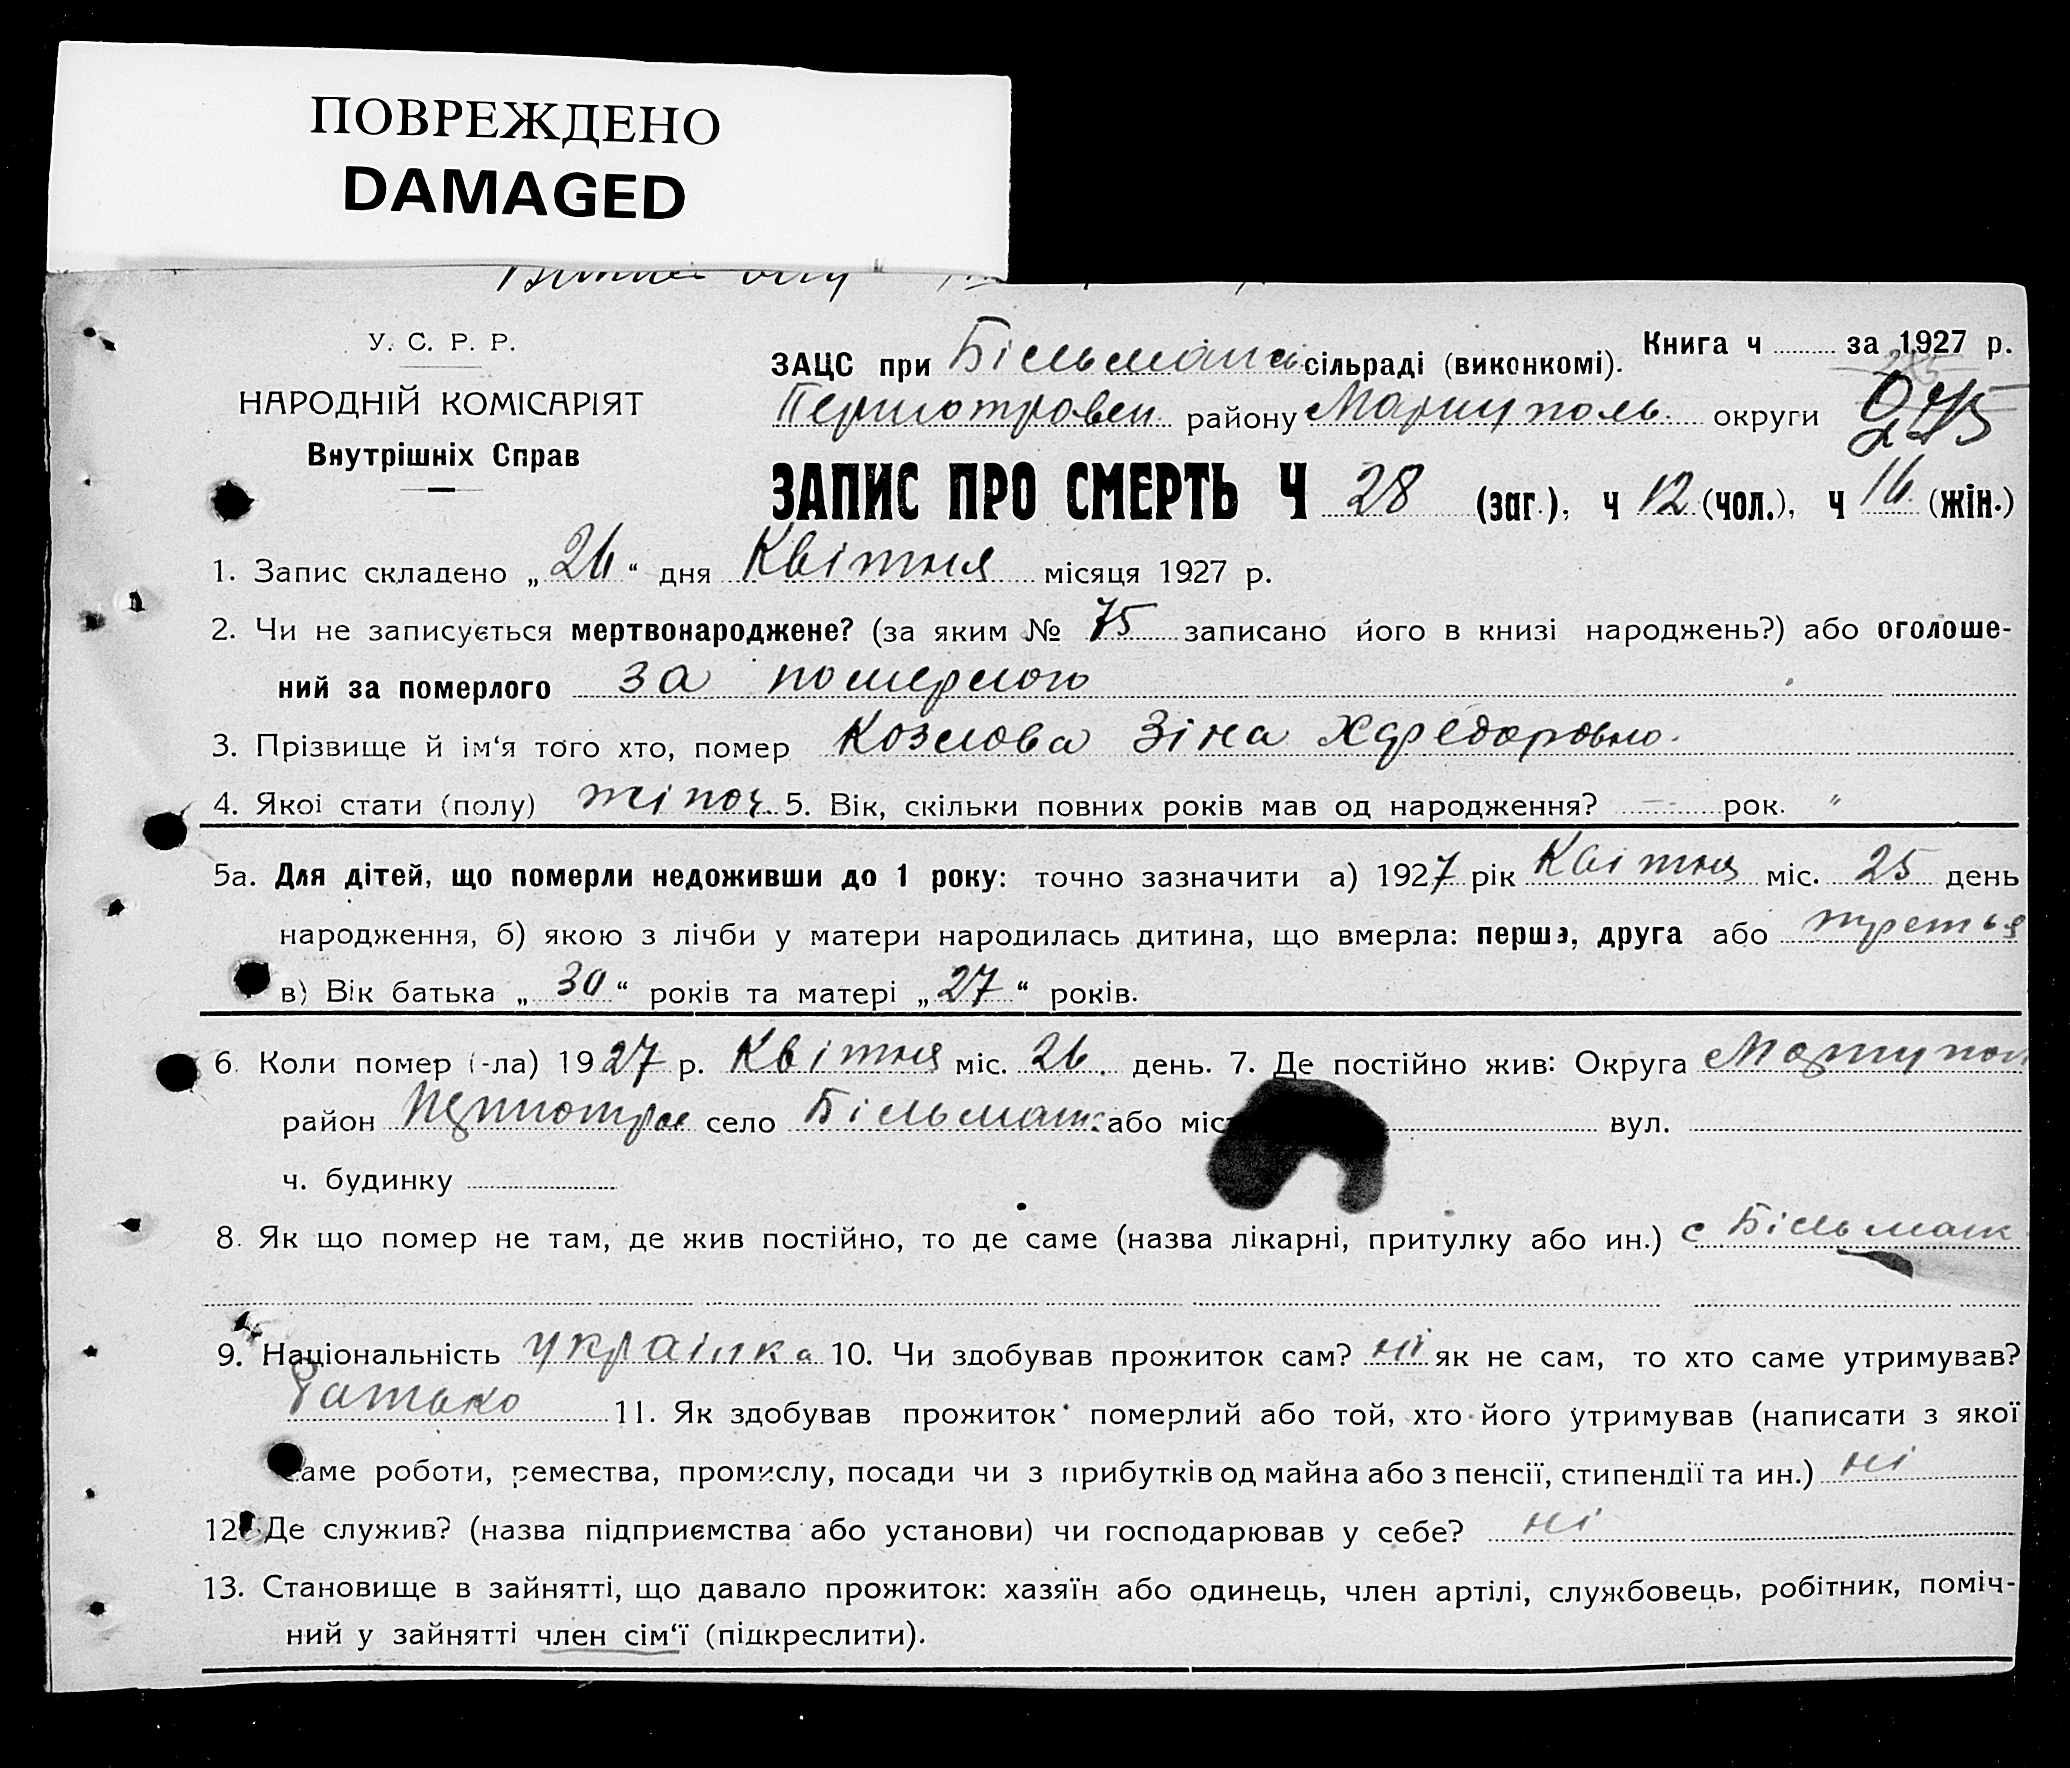 ПОВРЕЖДЕНО
DAMAGED
У. С. Р. Р.
НАРОДНІЙ КОМІСАРІЯТ
Внутрішніх Справ
Книга ч ......... за 1927 р.
ЗАЦС при Більманськ сільраді (виконкомі).
району Маріуполь. округи
ЗАПИС ПРО СМЕРТЬ Ч 28 (заг.), ч 12 (чол.), ч 16 (жін.)
1. Запис складено „ 26 “ дня Квітня місяця 1927 р.
2. Чи не записується мертвонароджене? (за яким № 75 записано його в книзі народжень?) або оголоше-
ний за померлого за померлого
3. Прізвище й ім‘я того хто, помер Козлова Зіна
4. Якої стати (полу) жіноч. 5. Вік, скільки повних років мав од народження? — рок. "
5а. Для дітей, що померли недоживши до 1 року: точно зазначити а) 1927 рік Квітня міс. 25 день
народження, б) якою з лічби у матери народилась дитина, що вмерла: перша, друга або третья
в) Вік батька „ 30 “ років та матері „ 27 “ років.
6. Коли помер (-ла) 1927 р. Квітня міс. 26. день. 7. Де постійно жив: Округа Маріупол
район село Більманк або міс вул.
ч. будинку
8. Як що помер не там, де жив постійно, то де саме (назва лікарні, притулку або ин.) с Більманк
9. Національність українка 10. Чи здобував прожиток сам? ні як не сам, то хто саме утримував?
Батько 11. Як здобував прожиток померлий або той, хто його утримував (написати з якої
саме роботи, ремества, промислу, посади чи з прибутків од майна або з пенсії, стипендії та ин.) ні
12. Де служив? (назва підприємства або установи) чи господарював у себе? ні
13. Становище в зайнятті, що давало прожиток: хазяїн або одинець, член артілі, службовець, робітник, поміч-
ний у зайнятті член сім‘ї (підкреслити).